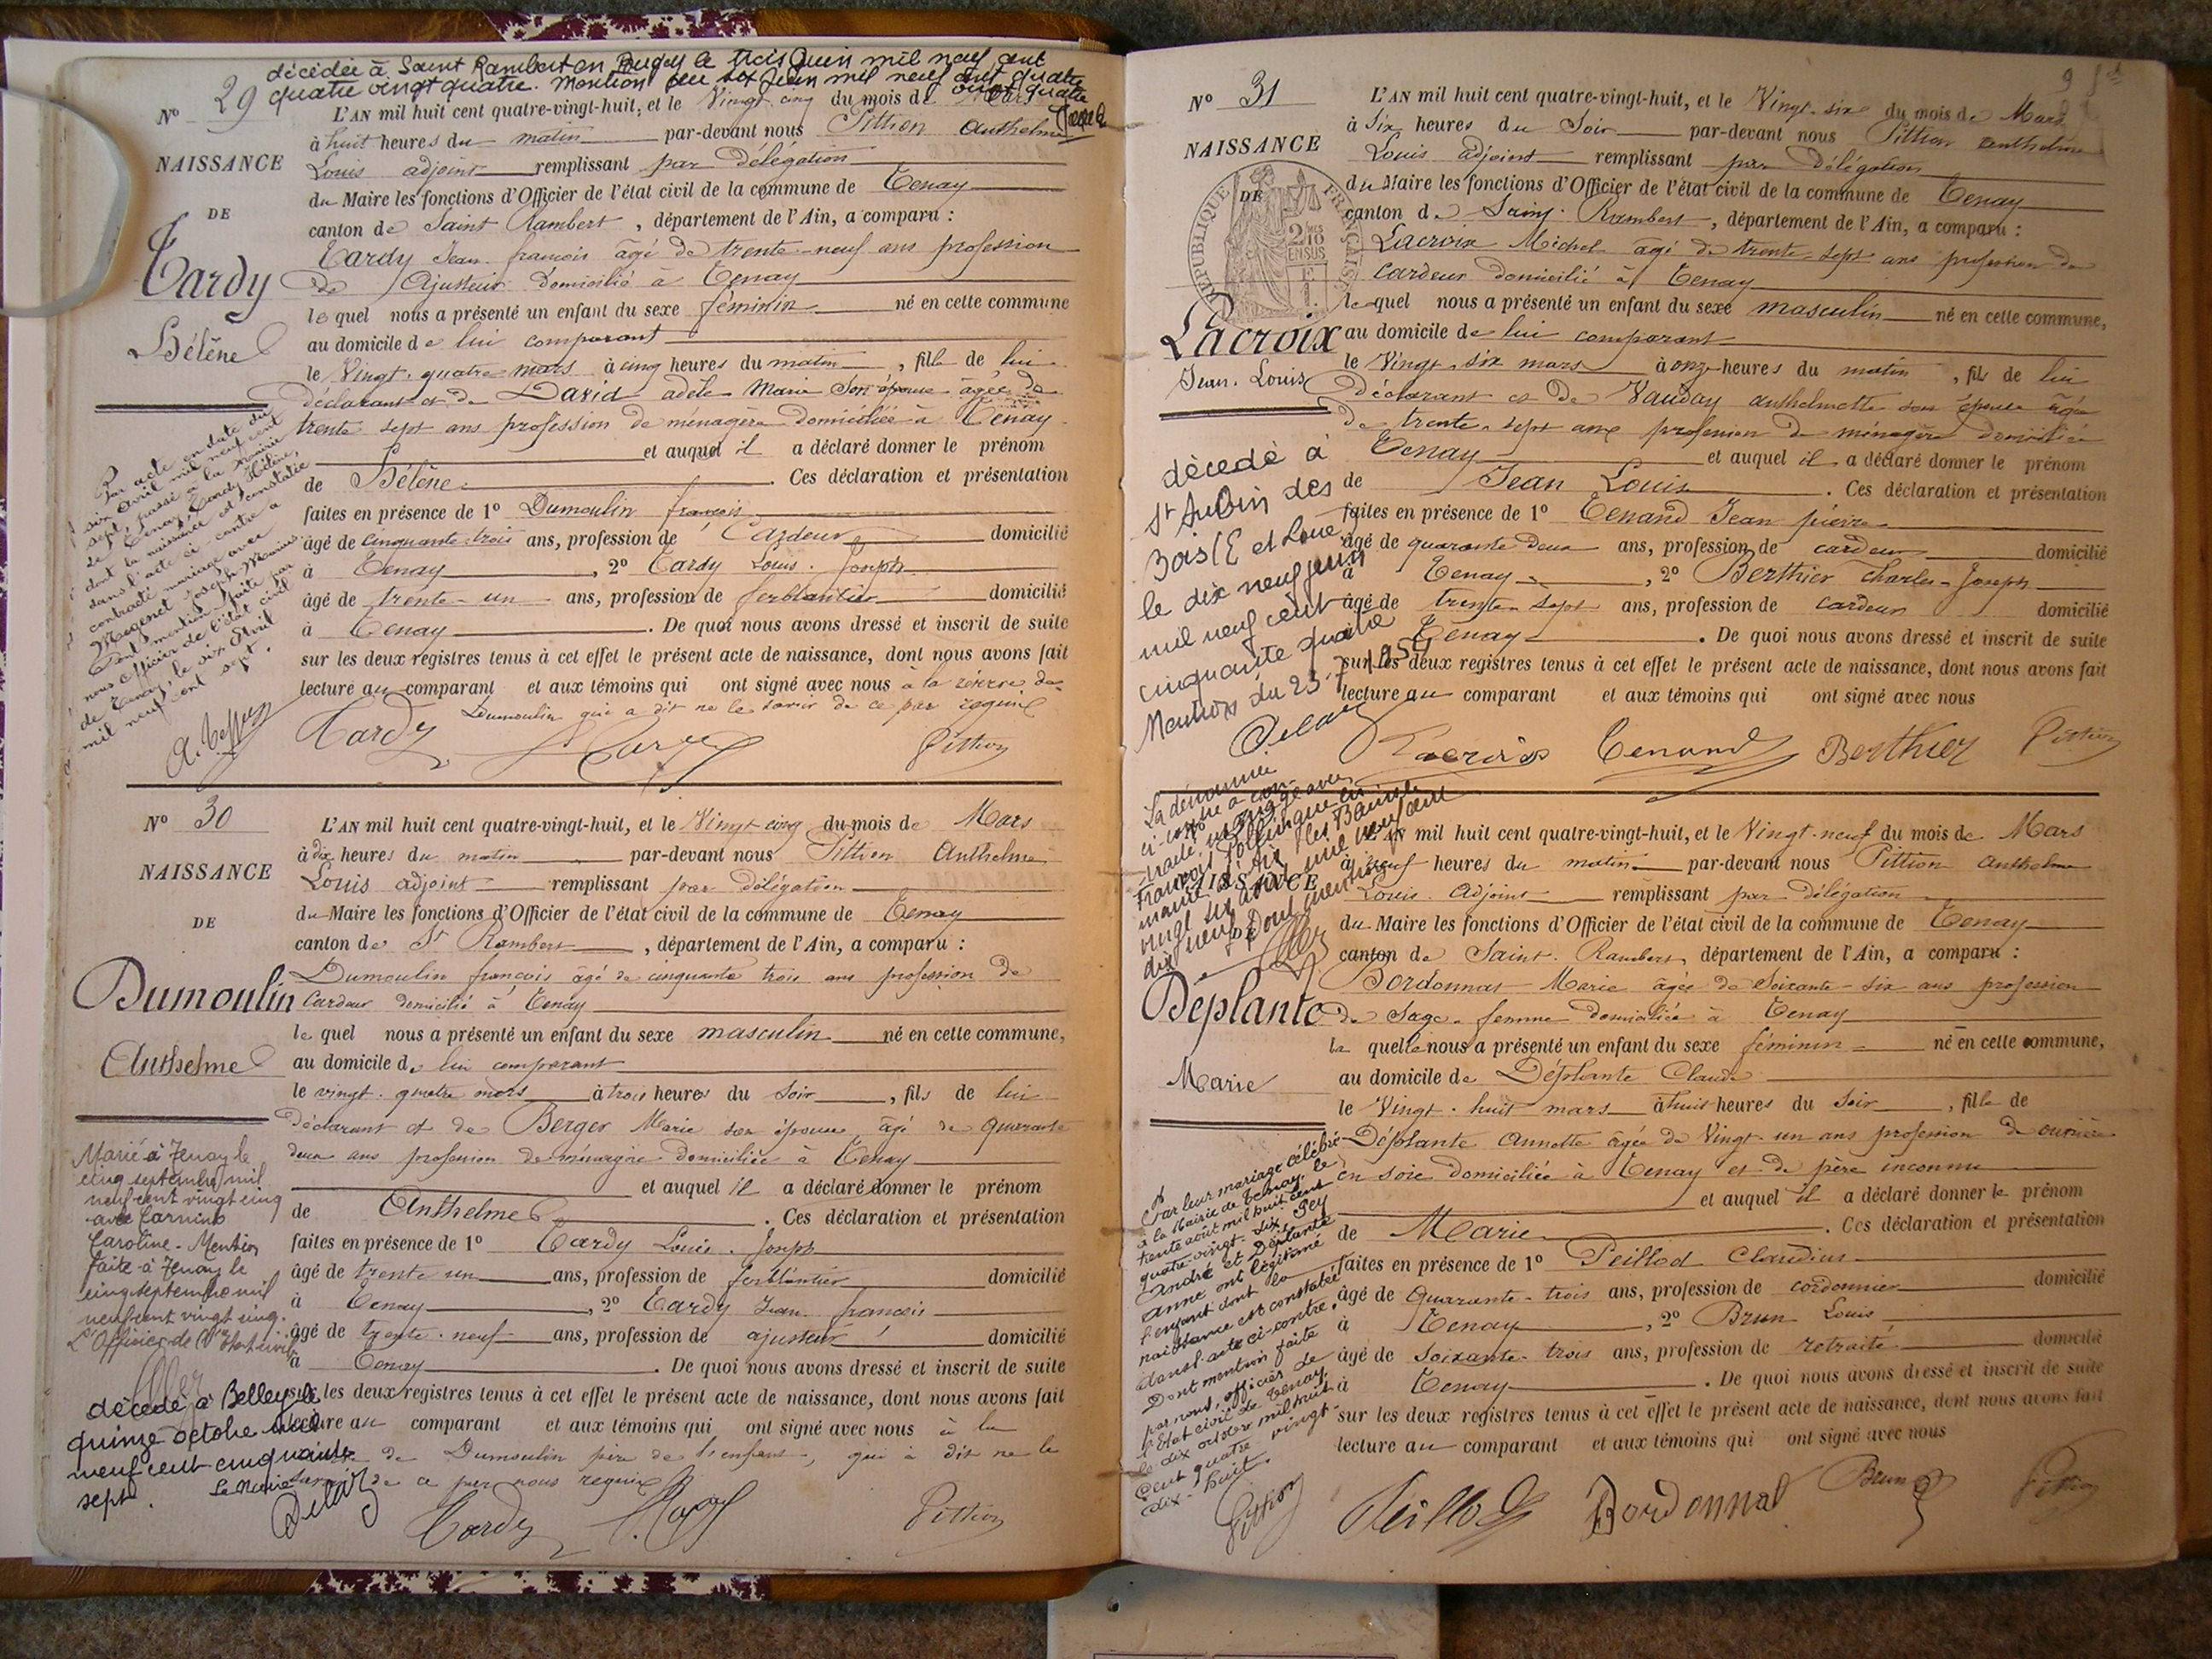 décédée à Saint Rambert en Bugey le trois Juin mil neuf cent
quatre vingt quatre. Mention du six Juin mil neuf cent quatre
vingt quatre
No 29
L'AN mil huit cent quatre-vingt-huit, et le Vingt-cinq du mois de Mars
à huit heures du matin par-devant nous Pittion Anthelme
NAISSANCE
Louis adjoint remplissant par délégation
du Maire les fonctions d'Officier de l'état civil de la commune de Tenay
DE
canton de Saint Rambert, département de l'Ain, a comparu :
Tardy
Hélène
Tardy Jean-françois âgé de trente-neuf ans profession
de Ajusteur domicilié à Tenay
le quel nous a présenté un enfant du sexe féminin né en cette commune
au domicile de lui comparant
le Vingt-quatre mars à cinq heures du matin, fille de lui
déclarant et de David adèle Marie son épouse âgée de
trente sept ans profession de ménagère domiciliée à Tenay
et auquel il a déclaré donner le prénom
de Hélène. Ces déclaration et présentation
faites en présence de 1° Dumoulin françois
âgé de cinquante-trois ans, profession de Cardeur domicilié
à Tenay, 2° Tardy Louis-Joseph
âgé de trente-un ans, profession de ferblantier domicilié
à Tenay. De quoi nous avons dressé et inscrit de suite
sur les deux registres tenus à cet effet le présent acte de naissance, dont nous avons fait
lecture au comparant et aux témoins qui ont signé avec nous à la réserve de
Dumoulin qui a dit ne le savoir de ce par requis
Par acte en date du
six Avril mil neuf cent
sept, passé à la mairie
de Tenay, Tardy Hélène,
dont la naissance est constatée
dans l'acte ci-contre a
contracté mariage avec
Joseph-Marius.
Dont mention faite par
nous officier de l'état civil
de Tenay, le six Avril
mil neuf cent sept.
Tardy Pittion
No 30
L'AN mil huit cent quatre-vingt-huit, et le Vingt cinq du mois de Mars
à dix heures du matin par-devant nous Pittion Anthelme
NAISSANCE
Louis adjoint remplissant par délégation
du Maire les fonctions d'Officier de l'état civil de la commune de Tenay
DE
canton de St Rambert, département de l'Ain, a comparu :
Dumoulin
Anthelme
Dumoulin françois âgé de cinquante trois ans profession de
Cardeur domicilié à Tenay
le quel nous a présenté un enfant du sexe masculin né en cette commune,
au domicile de lui comparant
le vingt-quatre mars à trois heures du soir, fils de lui
déclarant et de Berger Marie son épouse âgé de quarante
deux ans profession de ménagère domiciliée à Tenay
et auquel il a déclaré donner le prénom
de Anthelme. Ces déclaration et présentation
faites en présence de 1° Tardy Louis-Joseph
âgé de trente un ans, profession de ferblantier domicilié
à Tenay, 2° Tardy Jean-françois
âgé de trente-neuf ans, profession de ajusteur domicilié
à Tenay. De quoi nous avons dressé et inscrit de suite
sur les deux registres tenus à cet effet le présent acte de naissance, dont nous avons fait
lecture au comparant et aux témoins qui ont signé avec nous à la
de Dumoulin père de l'enfant, qui a dit ne le
savoir de ce par nous requis
Marié à Tenay le
cinq septembre mil
neuf cent vingt cinq
avec
Caroline - Mention
faite à Tenay le
cinq septembre mil
neuf cent vingt cinq.
L'Officier de l'Etat civil
décédé à Belley le
quinze octobre mil
neuf cent cinquante
sept.
Le Maire
Tardy Pittion
No 31
L'AN mil huit cent quatre-vingt-huit, et le Vingt-six du mois de Mars
à Six heures du Soir par-devant nous Pittion anthelme
NAISSANCE
Louis adjoint remplissant par Délégation
du Maire les fonctions d'Officier de l'état civil de la commune de Tenay
DE
canton de Saint-Rambert, département de l'Ain, a comparu :
RÉPUBLIQUE FRANÇAISE
2/10 EN SUS
Lacroix
Jean-Louis
Lacroix Michel âgé de trente-sept ans profession de
cardeur domicilié à Tenay
le quel nous a présenté un enfant du sexe masculin né en cette commune,
au domicile de lui comparant
le Vingt-six mars à onze heures du matin, fils de lui
déclarant et de Vauday anthelmette son épouse âgée
de trente-sept ans profession de ménagère domiciliée
Tenay et auquel il a déclaré donner le prénom
de Jean Louis. Ces déclaration et présentation
faites en présence de 1° Tenand Jean pierre
âgé de quarante deux ans, profession de cardeur domicilié
à Tenay, 2° Berthier Charles-Joseph
âgé de trente-sept ans, profession de cardeur domicilié
Tenay. De quoi nous avons dressé et inscrit de suite
sur les deux registres tenus à cet effet le présent acte de naissance, dont nous avons fait
lecture au comparant et aux témoins qui ont signé avec nous
décédé à
St Aubin des
Bois (E et Loire)
le dix neuf juin
mil neuf cent
cinquante quatre
Mention du 23-7-1954
Lacroix Tenand Berthier Pittion
La dénommée
ci-contre a con-
tracté mariage avec
François
mairie d'Aix les Bains le
vingt six mil neuf cent
dix neuf. Dont mention
L'AN mil huit cent quatre-vingt-huit, et le Vingt-neuf du mois de Mars
à neuf heures du matin par-devant nous Pittion anthelme
NAISSANCE
Louis Adjoint remplissant par délégation
du Maire les fonctions d'Officier de l'état civil de la commune de Tenay
canton de Saint-Rambert, département de l'Ain, a comparu :
Déplante
Marie
Bordonnat Marie âgée de Soixante-six ans profession
de Sage-femme domiciliée à Tenay
la quelle nous a présenté un enfant du sexe féminin né en cette commune,
au domicile de Déplante Claude
le Vingt-huit mars à huit heures du Soir, fille de
Déplante Annette âgée de Vingt-un ans profession de ouvrière
en soie domiciliée à Tenay et de père inconnu
et auquel il a déclaré donner le prénom
de Marie. Ces déclaration et présentation
faites en présence de 1° Peillod Claudius
âgé de Quarante-trois ans, profession de cordonnier domicilié
à Tenay, 2° Brun Louis
âgé de Soixante-trois ans, profession de retraité domicilié
à Tenay. De quoi nous avons dressé et inscrit de suite
sur les deux registres tenus à cet effet le présent acte de naissance, dont nous avons fait
lecture au comparant et aux témoins qui ont signé avec nous
Par leur mariage célébré
à la Mairie de Tenay, le
trente août mil huit cent
quatre-vingt-dix, Pey
André et Déplante
Anne ont légitimé
l'enfant dont la
naissance est constatée
dans l'acte ci-contre.
Dont mention faite
par nous, officier de
l'état civil de Tenay,
le dix octobre mil huit
cent quatre vingt-
dix-huit.
Pittion
Peillod Bordonnat Brun Pittion